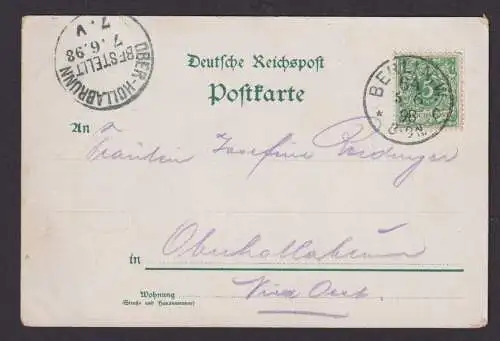 OBER-HOLLABRUNN
BESTELLT
7.6.98
7.V
Deutsche Reichspost
Postkarte
BERLIN.W.
98
8-9N.
5
An
Fräulein Josefine
in Oberhollabrunn
Wohnung
(Straße und Hausnummer)